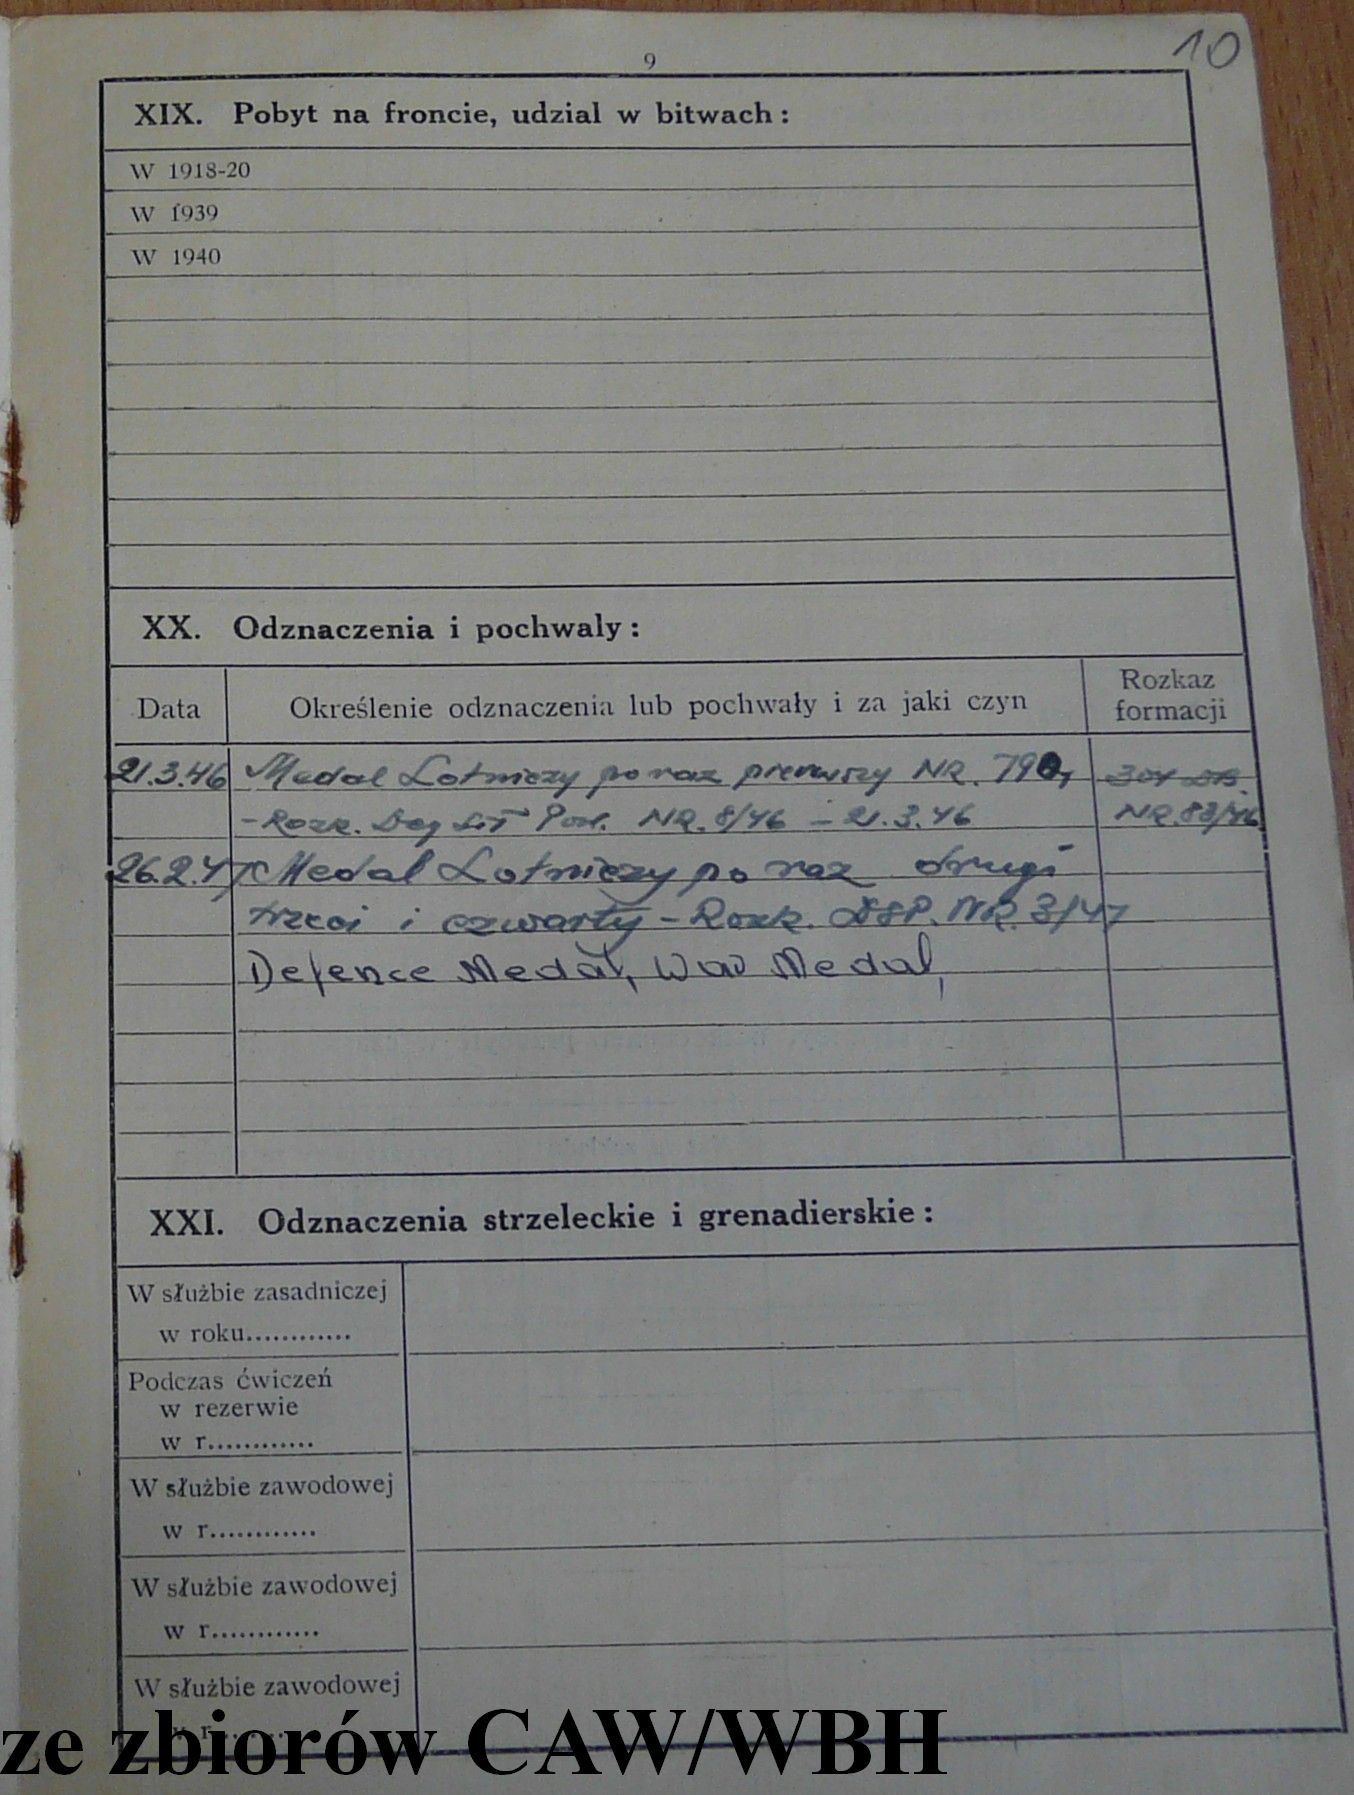 10
9
XIX. Pobyt na froncie, udzial w bitwach :
W 1918-20
W 1939
W 1940
XX. Odznaczenia i pochwaly :
Data
Określenie odznaczenia lub pochwały i za jaki czyn
Rozkaz
formacji
21.3.46 Medal Lotniczy po raz pierwszy NR. 790,
- Rozk. NR. 8/46 - 21.3.46 NR. 83/46
26.2.47 Medal Lotniczy po raz drugi
trzeci i czwarty - Rozk. DSP. NR. 3/47
Defence Medal, War Medal,
XXI. Odznaczenia strzeleckie i grenadierskie :
W służbie zasadniczej
w roku............
Podczas ćwiczeń
w rezerwie
w r............
W służbie zawodowej
w r............
W służbie zawodowej
w r............
W służbie zawodowej
w r............
ze zbiorów CAW/WBH